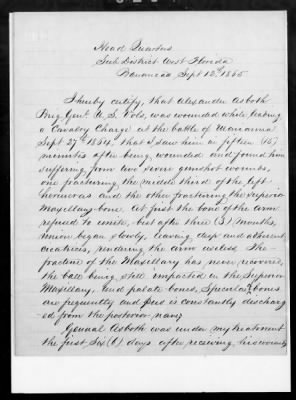 Head Quarters
Sub District West Florida
Barancas, Sept 12th 1865.
I hereby certify, that Alexander Asboth
Brig. Genl. U. S. Vols, was wounded while leading
a Cavalry Charge at the battle of Marianna
Sept 27th 1864, that I saw him a fifteen (15)
minutes after being wounded and found him
suffering from two severe gunshot wounds,
one fracturing the middle third of the left
humerus and the other fracturing the superior
Maxillary bone. At first the bone of the arm
refused to unite, but after three (3) months,
union began slowly, leaving deep and adherent
cicatrices, rendering the arm useless. The
fracture of the Maxillary has never recovered,
the ball being still impacted in the Superior
Maxillary, and palate bones. Spiculae bones
are frequently and pus is constantly discharg-
ed from the posterior nares
General Asboth was under my treatment
the first Six (6) days after receiving his wounds